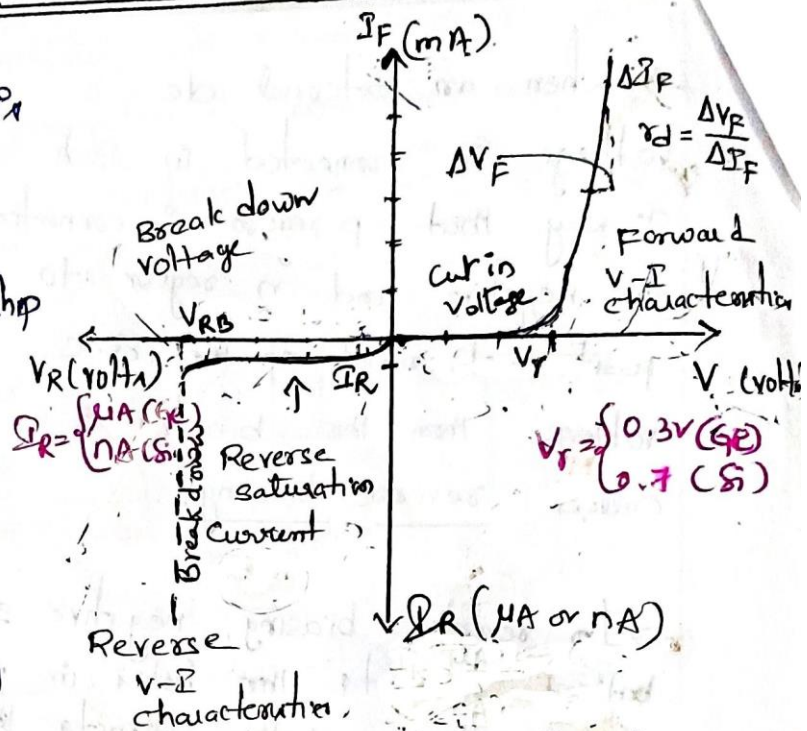 I_F (mA)
ΔI_F
rd = ΔV_F / ΔI_F
ΔV_F
Break down
voltage
Cut in
voltage
Forward
V-I
characteristics
V_RB
V_R (volts)
I_R
V_γ
V (volts
I_R = { μA (Ge)
nA (Si)
Break down
Reverse
saturation
current
V_γ = { 0.3V (Ge)
0.7 (Si)
I_R (μA or nA)
Reverse
V-I
characteristics.